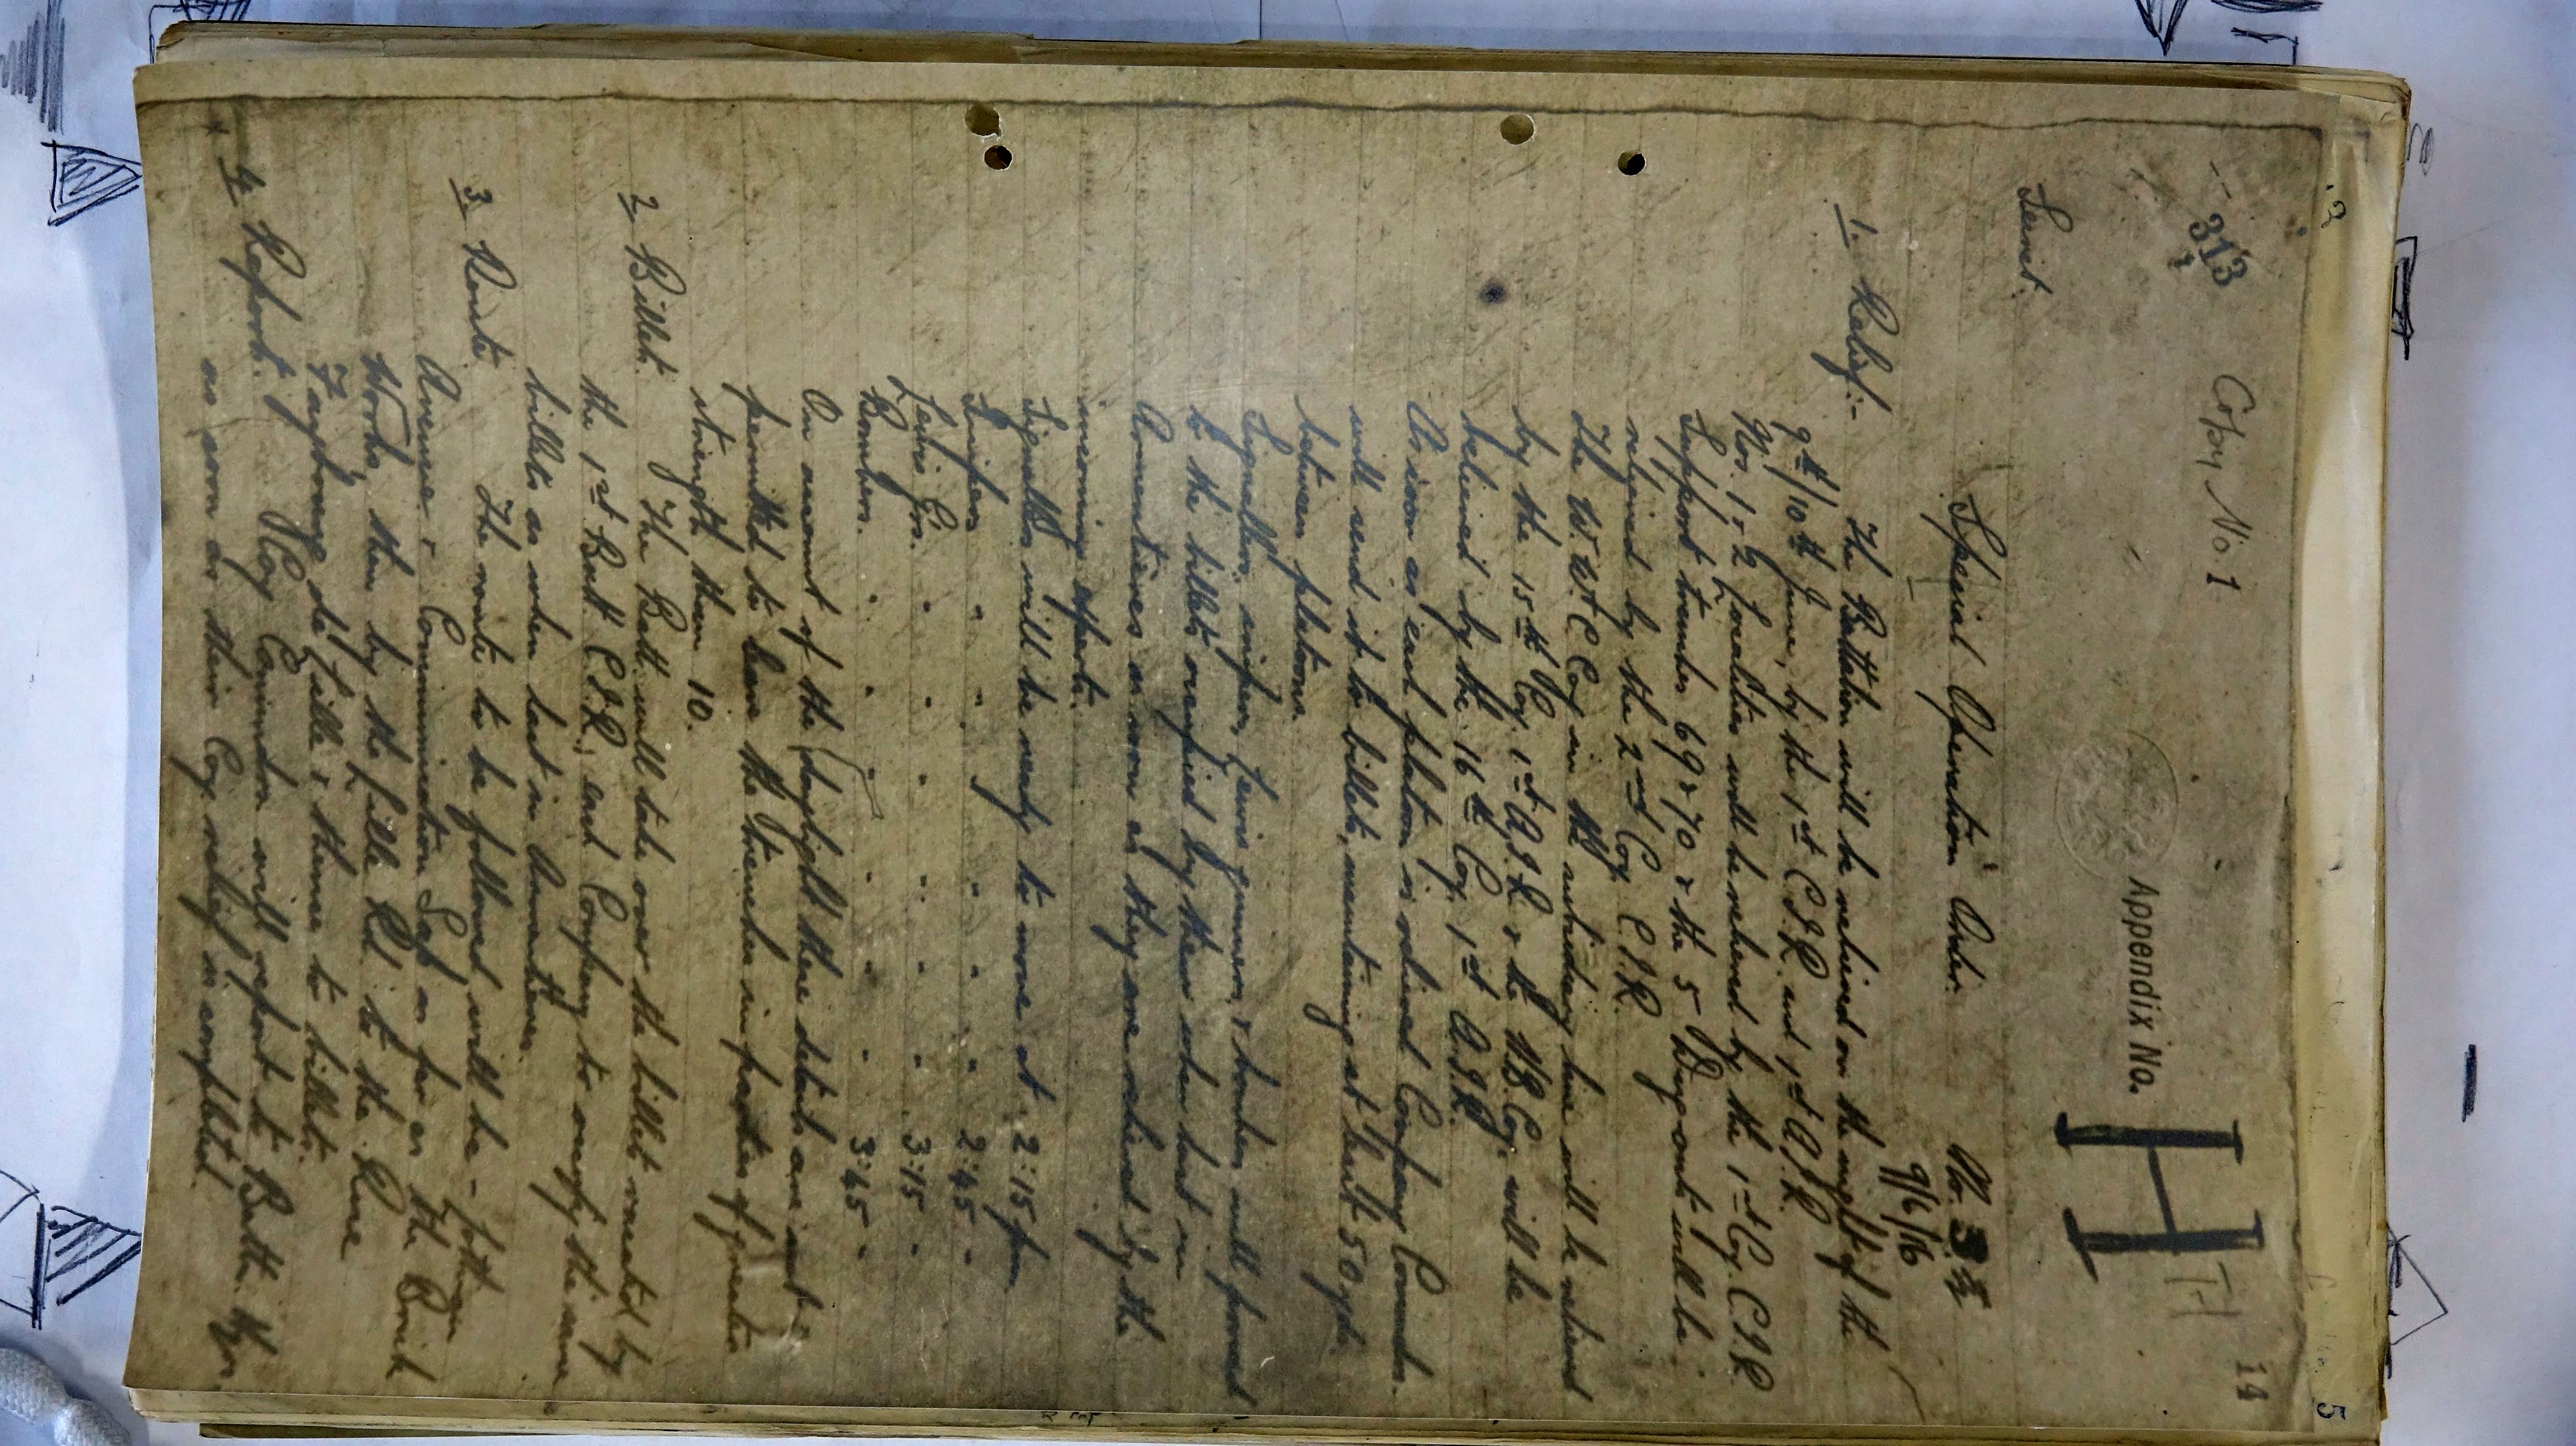 313
Copy No 1
14
Appendix No. H
Secret.
Special Operation Order. No. 35
9/6/16
1. Relief:-
The Battalion will be relieved on the night of the
9th/10th June, by the 1st C.I.R. and 1st A.I.R.
Nos. 1 & 2 Localities will be relieved by the 1st Coy. C.I.R.
Support trenches 69 & 70 & the 5 Dugouts will be
relieved by the 2nd Coy C.I.R.
The W.W.C. Coy in the subsidiary line will be relieved
by the 15th Coy. 1st A.I.R. & the Coy. will be
relieved by the 16th Coy. 1st A.I.R.
As soon as each platoon is relieved Company Commdrs.
will send it to billets, maintaining at least 50 yds
between platoons.
Signallers, snipers, Lewis gunners, & bombers will proceed
to the billets occupied by them when last in
Armentieres as soon as they are relieved by the
incoming experts.
Signallers will be ready to move at 2:15 pm
Snipers " " " " " 2:45 "
Lewis Gs. " " " " " 3:15 "
Bombers. " " " " " 3:45 "
On account of the daylight these details are not
permitted to leave the trenches in parties of greater
strength than 10.
2 Billets. The Batt. will take over the billets vacated by
the 1st Batt C.I.R., each Company to occupy the same
billets as when last in Armentieres.
3 Route. The route to be followed will be -
Avenue & Communication Sap as far as the Brick
Works, then by the Lille Rd. to the Rue
Faubourg de Lille & thence to billets.
4 Report. Coy Commdrs will report to Batt. Hqrs
as soon as their Coy relief is completed.